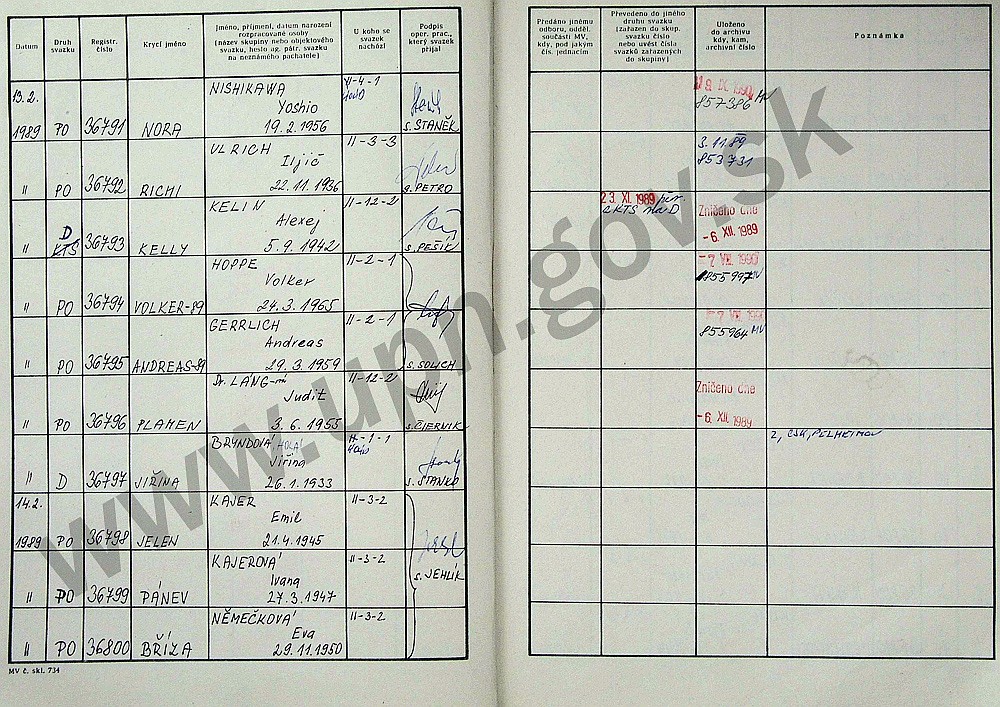 Datum
Druh svazku
Registr. číslo
Krycí jméno
Jméno, příjmení, datum narození
rozpracované osoby
(název skupiny nebo objektového
svazku, heslo ag. pátr. svazku
na neznámého pachatele)
U koho se
svazek
nachází
Podpis
oper. prac.,
který svazek
přijal
Předáno jinému
odboru, odděl.
součásti MV,
kdy, pod jakým
čís. jednacím
Převedeno do jiného
druhu svazku
(zařazen do skup.
svazku číslo
nebo uvést čísla
svazků zařazených
do skupiny)
Uloženo
do archivu
kdy, kam,
archivní číslo
Poznámka
13.2.
1989 PO 36791 NORA
NISHIKAWA
Yoshio
19.2.1956
II-4-1
s. STANĚK
857386 MV
" PO 36792 RICHI
ULRICH
Iljič
22.11.1936
II-3-3
s. PETRO
3.11.89
853731
D
" KTS 36793 KELLY
KELIN
Alexej
5.9.1942
II-12-2
s. PEŠÍK
23. XI. 1989
z KTS na D
Zničeno dne
-6. XII. 1989
" PO 36794 VOLKER-89
HOPPE
Volker
24.3.1965
II-2-1
-7 VIII. 1990
855997 MV
" PO 36795 ANDREAS-89
GERRLICH
Andreas
29.3.1959
II-2-1
s. SOLICH
855964 MV
" PO 36796 PLAMEN
LÁNG-
Judit
3.6.1955
II-12-2
s. ČIERNIK
Zničeno dne
-6. XII. 1989
" D 36797 JIŘINA
BRYNDOVÁ
Jiřina
26.1.1933
II-1-1
s. STANKO
14.2.
1989 PO 36798 JELEN
KAJER
Emil
21.4.1945
II-3-2
" PO 36799 PÁNEV
KAJEROVÁ
Ivana
27.3.1947
II-3-2
s. JEHLÍK
" PO 36800 BŘÍZA
NĚMEČKOVÁ
Eva
29.11.1950
II-3-2
MV č. skl. 734
www.upn.gov.sk